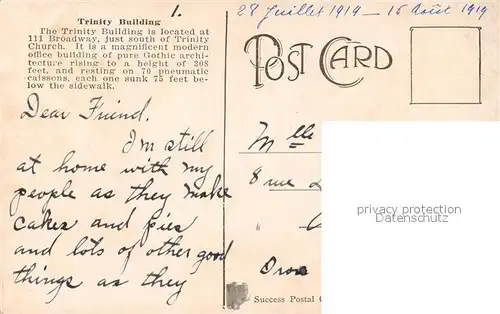 1.
28 Juillet 1919 — 15 Août 1919
Trinity Building
The Trinity Building is located at
111 Broadway, just south of Trinity
Church. It is a magnificent modern
office building of pure Gothic archi-
tecture rising to a height of 308
feet, and resting on 70 pneumatic
caissons, each one sunk 75 feet be-
low the sidewalk.
POST CARD
Dear Friend.
I'm still
at home with my
people as they make
cakes and pies
and lots of other good
things as they
Mlle
8 rue
"
privacy protection
Datenschutz
Success Postal